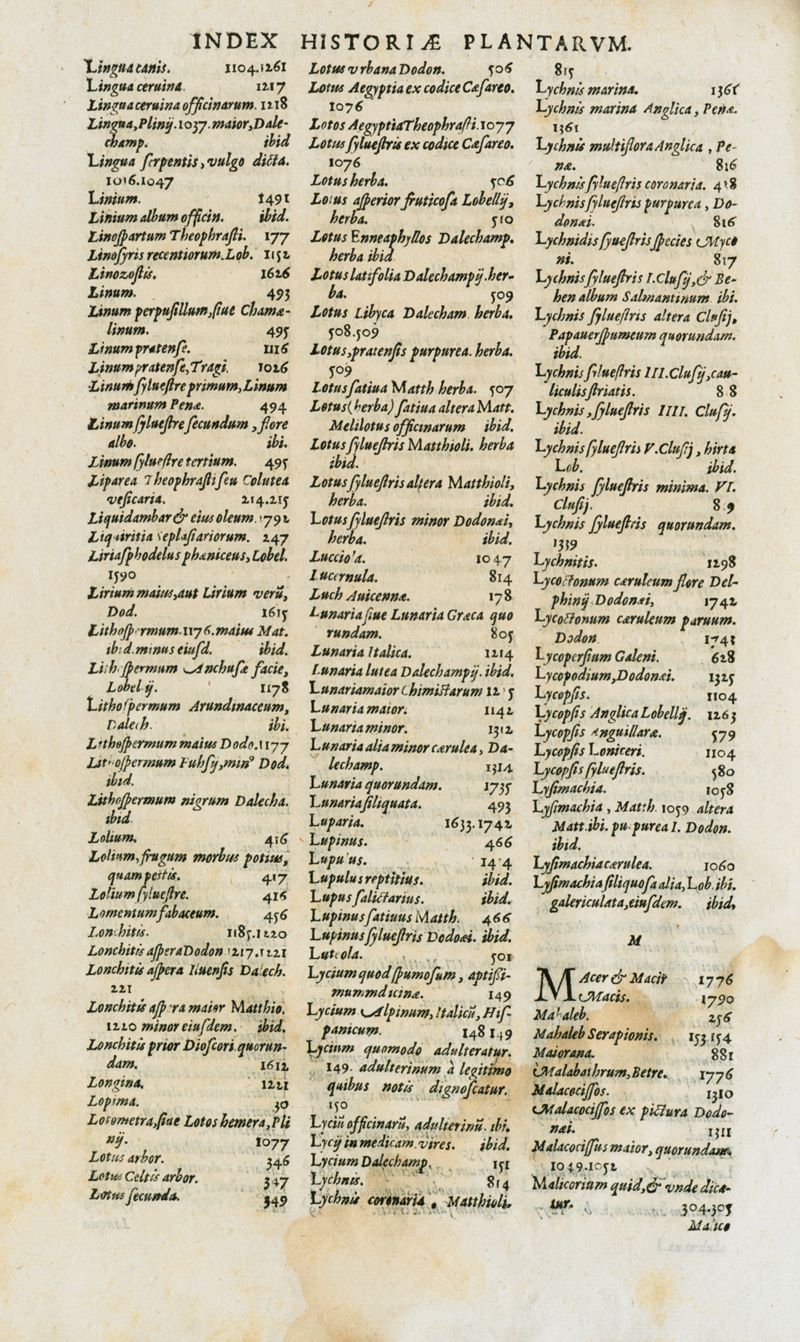 INDEX HISTORIÆ PLANTARVM.
Lingua canis. 1104.1261
Lingua ceruina. 1217
Lingua ceruina officinarum. 1218
Lingua, Plinij. 1037. maior, Dale-
champ. ibid
Lingua serpentis, vulgo dicta.
1016.1047
Linium. 1491
Linium album officin. ibid.
Linospartum Theophrasti. 177
Linosyris recentiorum. Lob. 1152
Linozostis. 1626
Linum. 493
Linum perpusillum, siue Chamæ-
linum. 495
Linum pratense. 1116
Linum pratense, Tragi. 1026
Linum syluestre primum, Linum
marinum Penæ. 494
Linum syluestre secundum, flore
albo. ibi.
Linum syluestre tertium. 495
Liparea Theophrasti seu Colutea
vesicaria. 214.215
Liquidambar & eius oleum. 1792
Liquiritia Seplasiariorum. 247
Liriasphodelus phæniceus, Lobel.
1590
Lirium maius, aut Lirium verũ,
Dod. 1615
Lithospermum. 1176. maius Mat.
ibid. minus eiusd. ibid.
Lithospermum Anchusæ facie,
Lobelij. 1178
Lithospermum Arundinaceum,
Dalech. ibi.
Lithospermum maius Dodo. 1177
Lithospermum Fuhsij, min⁹ Dod.
ibid.
Lithospermum nigrum Dalecha.
ibid.
Lolium. 416
Lolium, frugum morbus potius,
quam pestis. 417
Lolium syluestre. 416
Lomentum fabaceum. 456
Lonchitis. 1185.1220
Lonchitis aspera Dodon 1217.1221
Lonchitis aspera Iluensis Dalech.
221
Lonchitis aspera maior Matthio.
1220 minor eiusdem. ibid.
Lonchitis prior Dioscori. quorun-
dam. 1612
Longina. 1221
Lopima. 30
Lotometra, siue Lotos hemera, Pli
nij. 1077
Lotus arbor. 346
Lotus Celtis arbor. 347
Lotus secunda. 349
Lotus vrbana Dodon. 506
Lotus Aegyptia ex codice Cæsareo.
1076
Lotos Aegyptia Theophrasti. 1077
Lotus syluestris ex codice Cæsareo.
1076
Lotus herba. 506
Lotus asperior fruticosa Lobellij,
herba. 510
Lotus Enneaphyllos Dalechamp.
herba ibid
Lotus latifolia Dalechampij. her-
ba. 509
Lotus Libyca Dalecham herba.
508.509
Lotus, pratensis purpurea. herba.
509
Lotus satiua Matth herba. 507
Lotus (herba) satiua altera Matt.
Melilotus officinarum ibid.
Lotus syluestris Matthioli. herba
ibid.
Lotus syluestris altera Matthioli,
herba. ibid.
Lotus syluestris minor Dodonæi,
herba. ibid.
Lucciola. 1047
Lucernula. 814
Luch Auicennæ. 178
Lunaria siue Lunaria Græca quo
rundam. 805
Lunaria Italica. 1214
Lunaria lutea Dalechampij. ibid.
Lunaria maior Chimistarum 12 5
Lunaria maior. 1142
Lunaria minor. 1312
Lunaria alia minor cærulea, Da-
lechamp. 1314
Lunaria quorundam. 1735
Lunaria siliquata. 493
Luparia. 1633.1742
Lupinus. 466
Lupulus. 14 4
Lupulus reptitius. ibid.
Lupus salictarius. ibid.
Lupinus satiuus Matth. 466
Lupinus syluestris Dodoæi. ibid.
Luteola. 501
Lycium quod spumosum, aptissi-
mum medicinæ. 149
Lycium Alpinum, Italicũ, His-
panicum. 148 149
Lycium quomodo adulteratur.
149. adulterinum à legitimo
quibus notis dignoscatur.
150
Lyciũ officinarũ, adulterinũ. ibi.
Lycij in medicam. vires. ibid.
Lycium Dalechamp. 151
Lychnis. 814
Lychnis coronaria, Matthioli.
815
Lychnis marina. 1361
Lychnis marina Anglica, Penæ.
1361
Lychnis multiflora Anglica, Pe-
næ. 816
Lychnis syluestris coronaria. 418
Lychnis syluestris purpurea, Do-
donæi. 816
Lychnidis syuestris species Myco
ni. 817
Lychnis syluestris I. Clusij, & Be-
hen album Salmantinum ibi.
Lychnis syluestris altera Clusij,
Papauer spumeum quorundam.
ibid.
Lychnis syluestris III. Clusij, cau-
liculis striatis. 8 8
Lychnis, syluestris IIII. Clusij.
ibid.
Lychnis syluestris V. Clusij, hirta
Lob. ibid.
Lychnis syluestris minima. VI.
Clusij. 8 9
Lychnis syluestris quorundam.
1339
Lychnitis. 1298
Lycoctonum cæruleum flore Del-
phinij Dodonæi, 1742
Lycoctonum cæruleum paruum.
Dodon 1743
Lycopersium Galeni. 628
Lycopodium, Dodonæi. 1325
Lycopsis. 1104
Lycopsis Anglica Lobellij. 1263
Lycopsis Anguillaræ. 579
Lycopsis Loniceri. 1104
Lycopsis syluestris. 580
Lysimachia. 1058
Lysimachia, Matth. 1059 altera
Matt. ibi. purpurea I. Dodon.
ibid.
Lysimachia cærulea. 1060
Lysimachia siliquosa alia, Lob. ibi.
galericulata, eiusdem. ibid.
M
MAcer & Macir 1776
Macis. 1790
Mahaleb. 256
Mahaleb Serapionis. 153 154
Maiorana. 881
Malabathrum, Betre. 1776
Malacocissos. 1310
Malacocissos ex pictura Dodo-
næi. 1311
Malacocissus maior, quorundam.
1049.1052
Malicorium quid, & vnde dica-
tur. 304.305
Malico